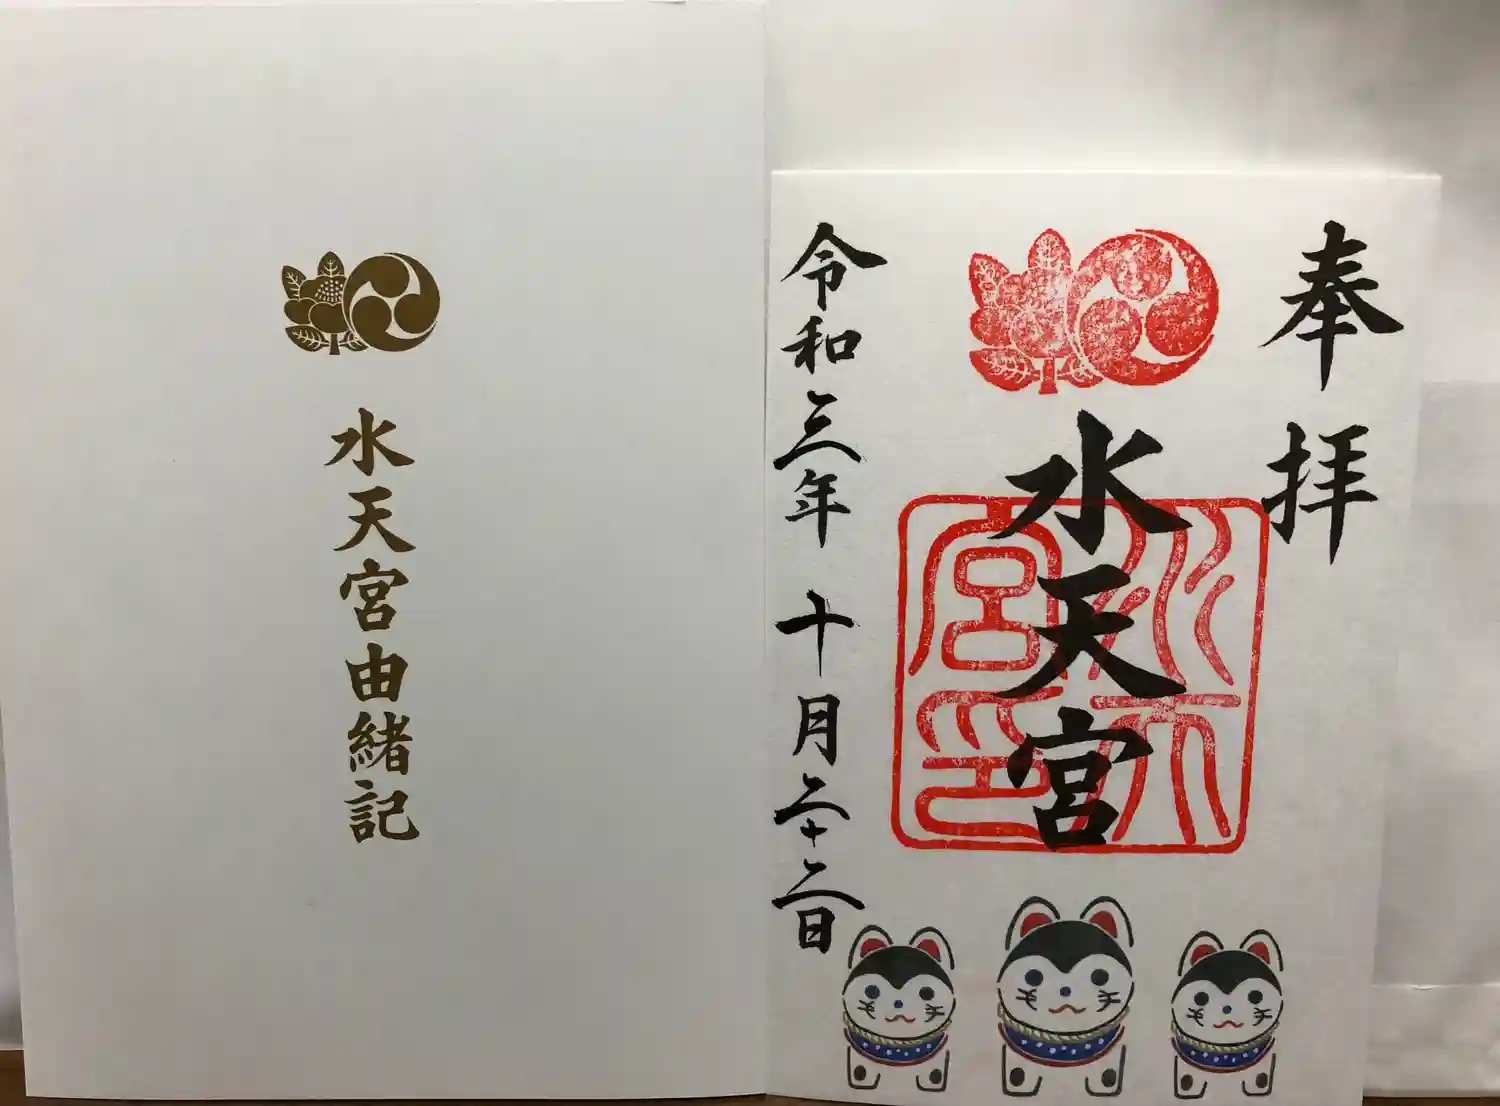 水天宮由緒記
奉拝
水天宮
水天
宮印
令和三年 十月二十二日